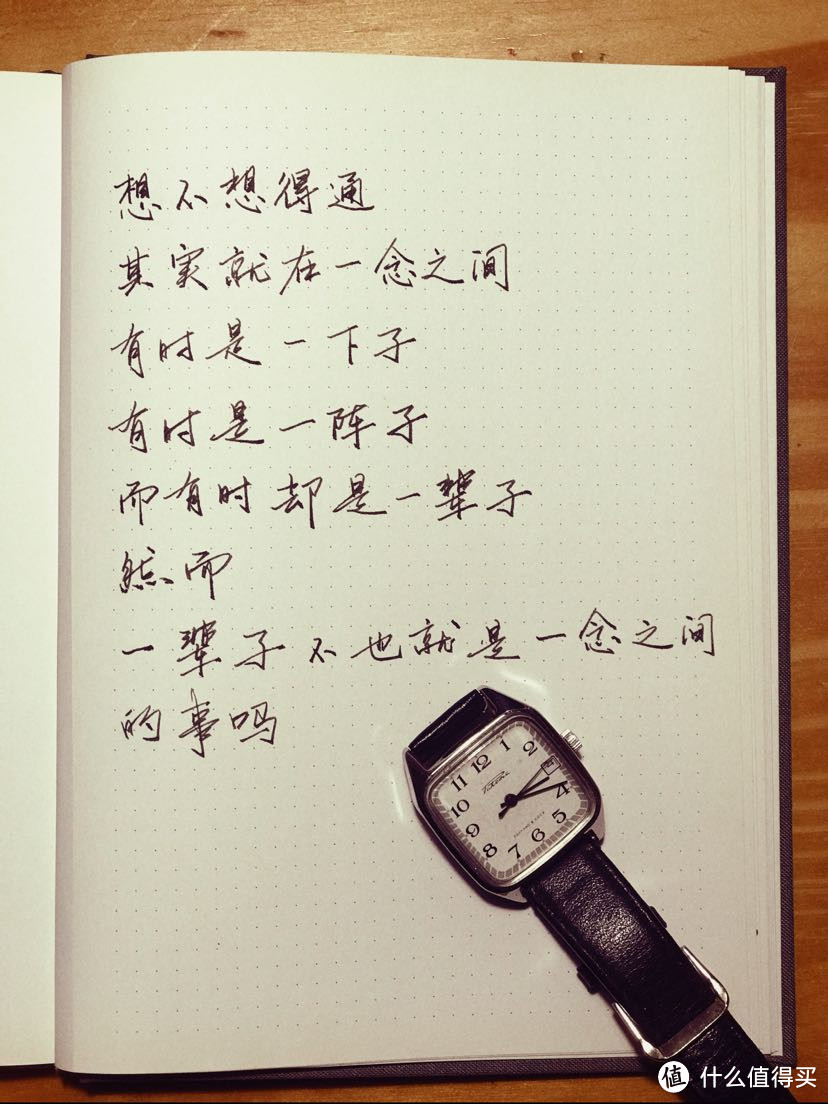 想不想得通
其实就在一念之间
有时是一下子
有时是一阵子
而有时却是一辈子
然而
一辈子不也就是一念之间
的事吗
11 12 1 2
10 4
9 5
8 7 6
值 什么值得买